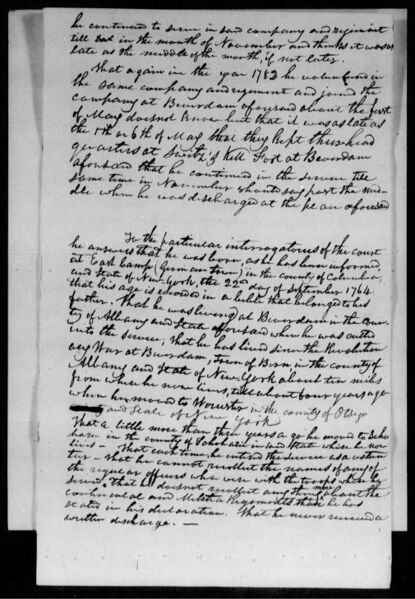 he continued to serve in said company and regiment
till in the month of November and thinks it was as
late as the middle of the month, if not later.
That again in the year 1782 he volunteered in
the same company and regiment and joined the
company at Beaverdam aforesaid about the first
of May does not know but that it was as late as
the 5th or 6th of May that they kept their head
quarters at Switz's Kill Fort at Beverdam
aforesaid that he continued in the service till
same time in November should say past the mid-
dle when he was discharged at the place aforesaid
To the particular interrogatories of the court
he answers that he was born, as he has been informed,
at East Camp (German town) in the county of Columbia
and State of New York, the 22nd day of September 1764.
that his age is recorded in a bible that belonged to his
father. That he was living at Beverdam in the coun-
ty of Albany and State aforesaid when he was called
into the service; that he has lived since the Revolution
ary War at Beverdam, town of Bern in the county of
Albany and State of New York about ten miles
from where he now lives, till about four years ago
when he moved to Worcester in the county of Otsego
and State of New York
That a little more than three years ago he moved to Scho
harie in the county of Schoharie and State where he now
lives - That each time, he entered the service as a volun
teer - that he cannot recollect the names of any of
the regular officers who were with the troops when he
served, that he does not recollect any thing more about the
continental and Militia Regiments than he has
stated in his declaration. That he never received a
written discharge. —